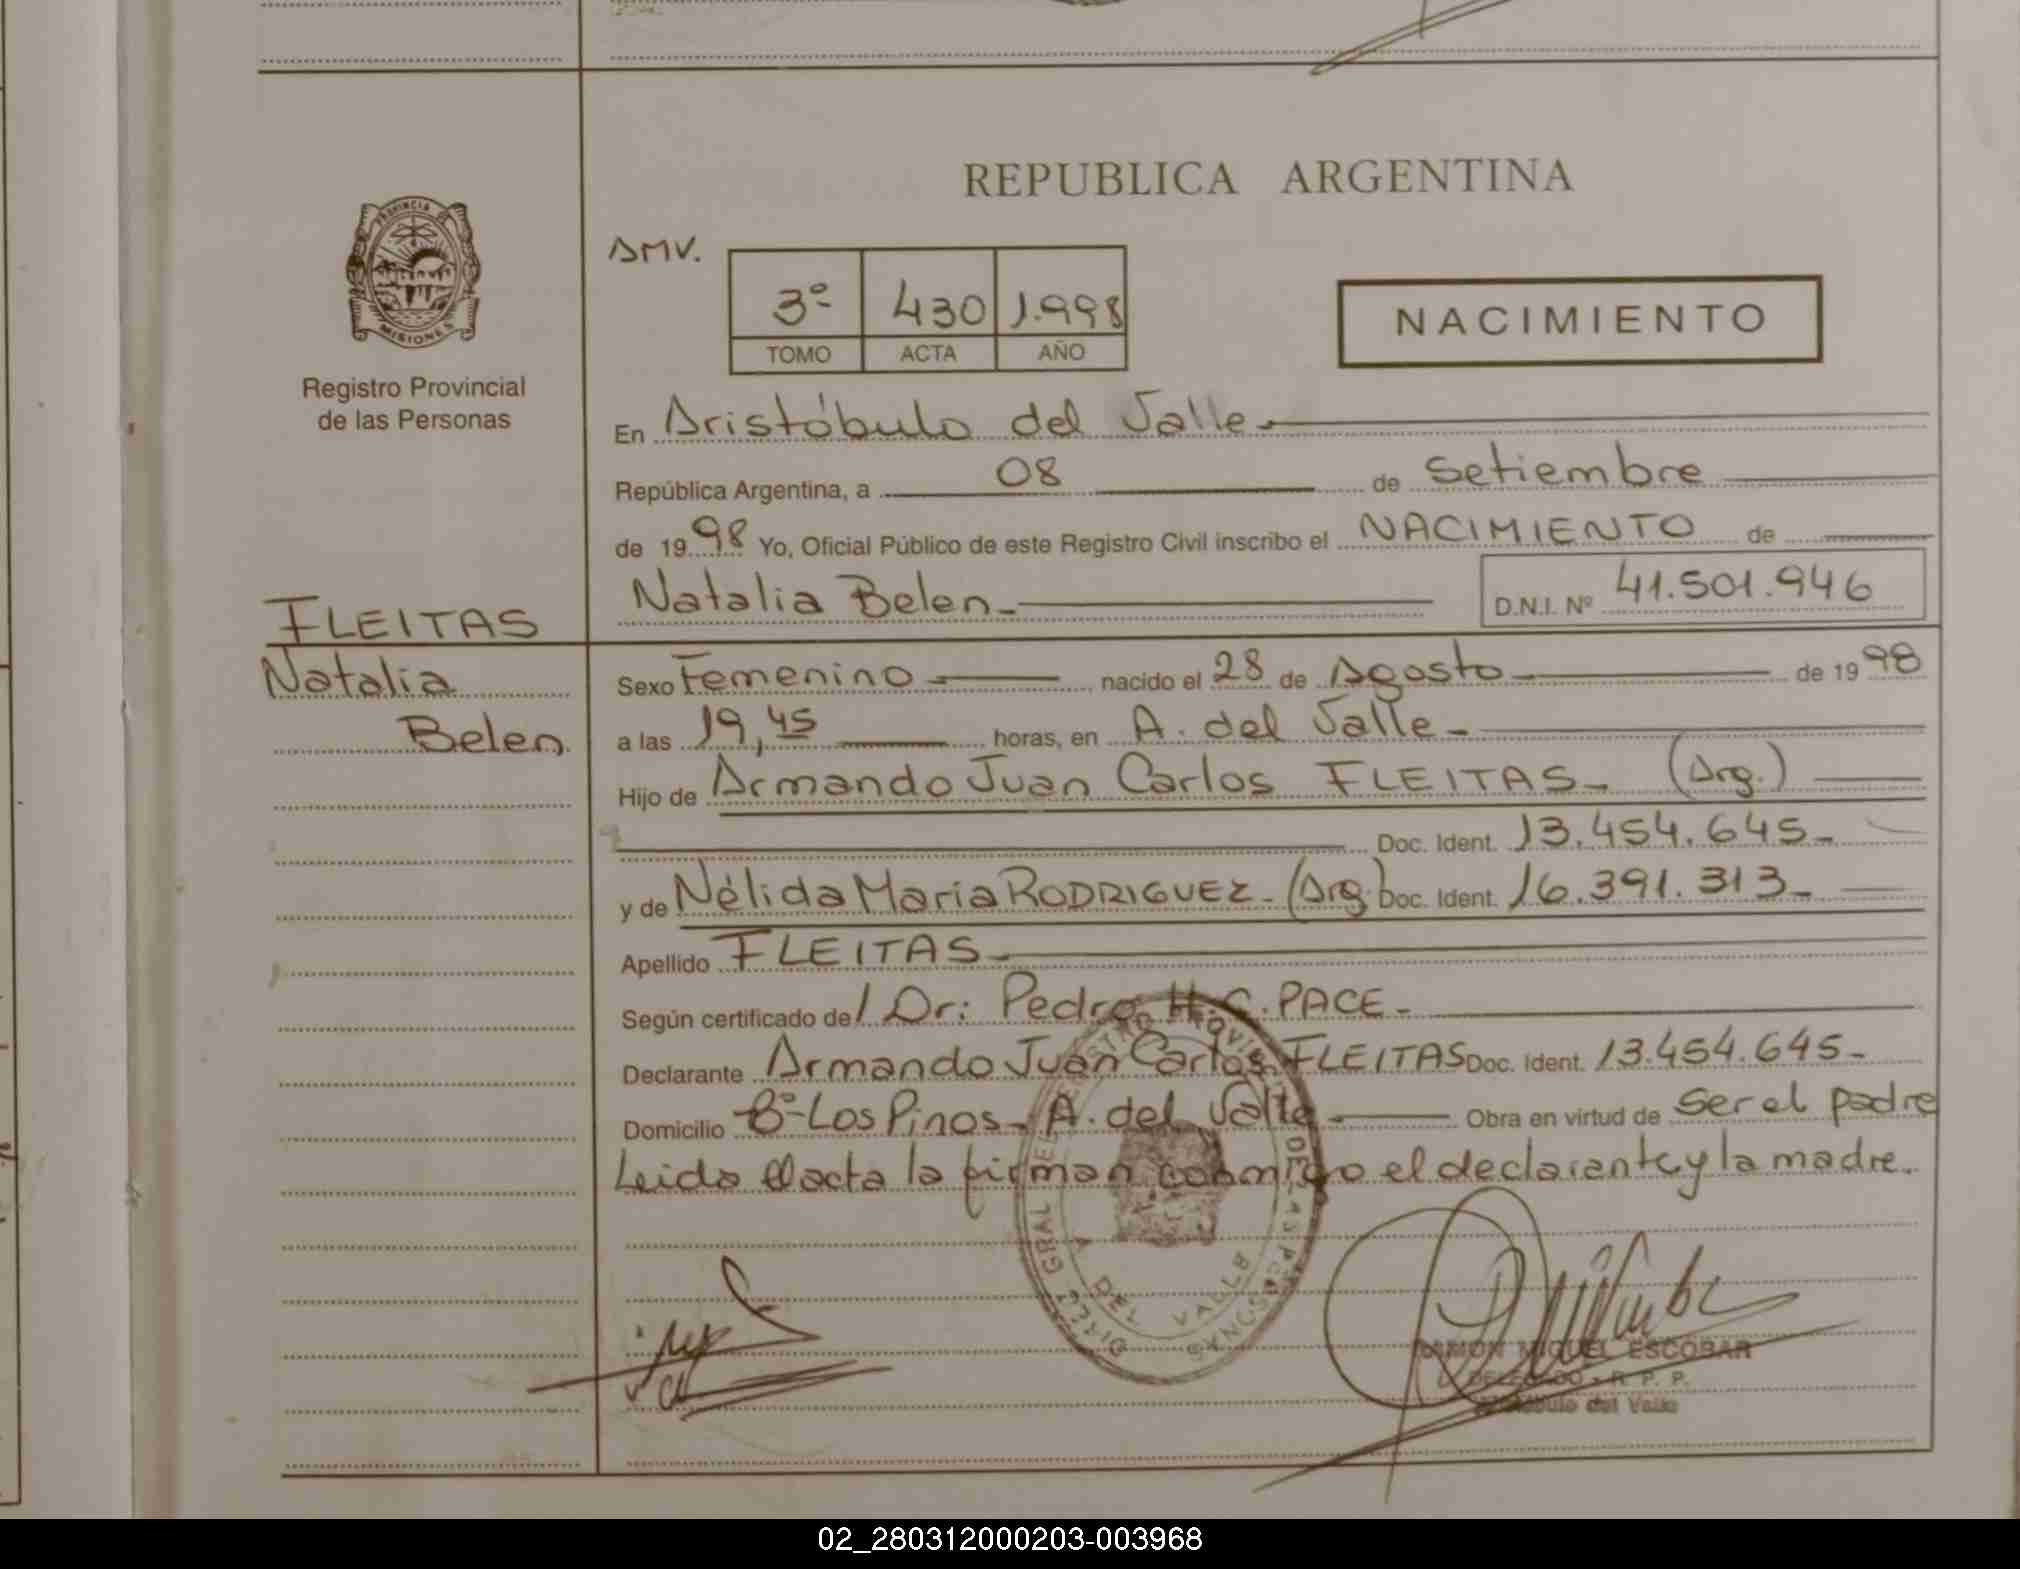 PROVINCIA DE
MISIONES
Registro Provincial
de las Personas
FLEITAS
Natalia
Belen
REPUBLICA ARGENTINA
AMV.
3º 430 1.998
TOMO ACTA AÑO
NACIMIENTO
En Aristóbulo del Valle
República Argentina, a 08 de Setiembre
de 1998 Yo, Oficial Público de este Registro Civil inscribo el NACIMIENTO de
Natalia Belen D.N.I. Nº 41.501.946
Sexo Femenino nacido el 28 de Agosto de 1998
a las 19,45 horas, en A. del Valle
Hijo de Armando Juan Carlos FLEITAS (Arg.)
Doc. Ident. 13.454.645
y de Nélida María RODRIGUEZ (Arg.) Doc. Ident. 16.391.313
Apellido FLEITAS
Según certificado del Dr: Pedro H.C. PACE
Declarante Armando Juan Carlos FLEITAS Doc. Ident. 13.454.645
Domicilio Bº Los Pinos A. del Valle Obra en virtud de ser el padre
Leida el acta la firman conmigo el declarante y la madre.
A DEL VALLE
RAMON MIGUEL ESCOBAR
DELEGADO - R. P. P.
Aristóbulo del Valle
02_280312000203-003968